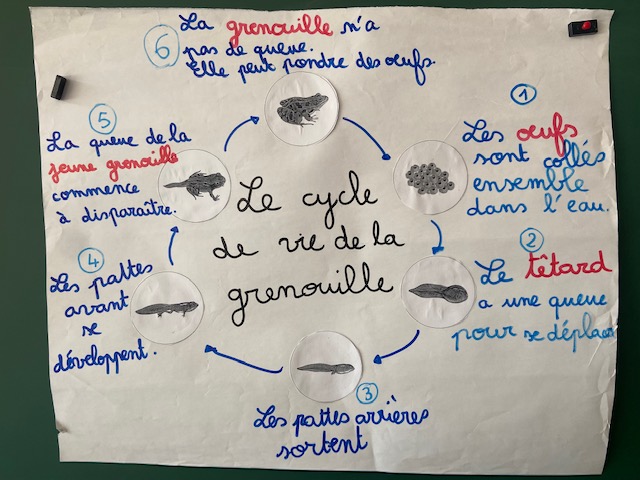 Le cycle
de vie de la
grenouille
1
Les oeufs
sont collés
ensemble
dans l'eau.
2
Le têtard
a une queue
pour se déplacer
3
Les pattes arrières
sortent
4
Les pattes
avant
se
développent.
5
La queue de la
jeune grenouille
commence
à disparaître.
6
La grenouille n'a
pas de queue.
Elle peut pondre des oeufs.